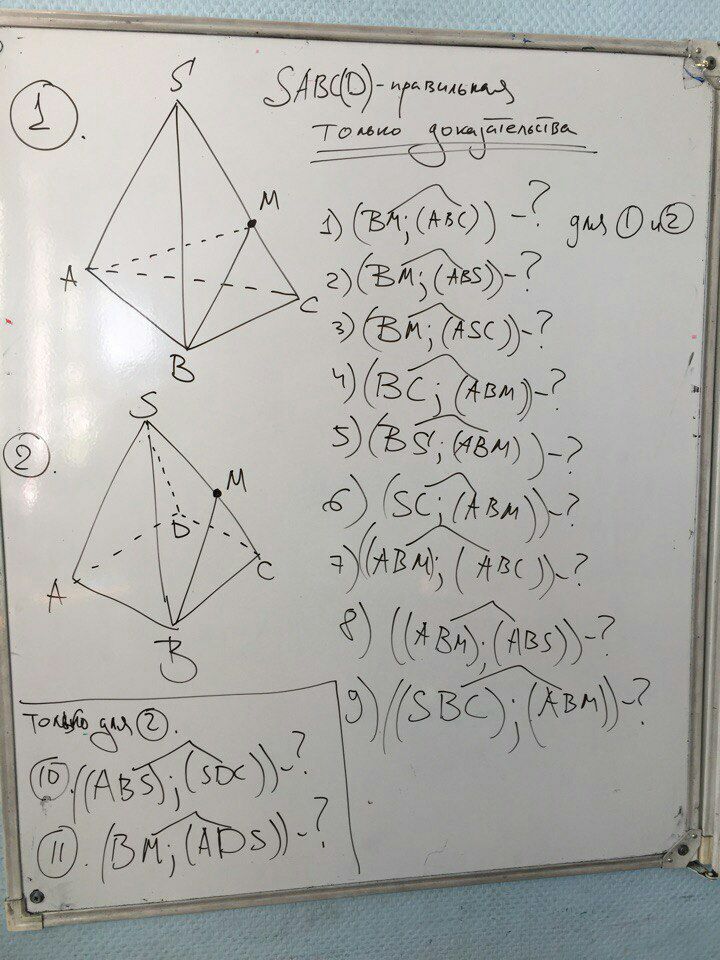 1.
SABC(D)-правильная
только доказательства
S
M
A
C
B
2.
S
M
D
A
C
B
1) (BM; (ABC)) -? для ① и ②
2) (BM; (ABS)) -?
3) (BM; (ASC)) -?
4) (BC; (ABM)) -?
5) (BS; (ABM)) -?
6) (SC; (ABM)) -?
7) ((ABM); (ABC)) -?
8) ((ABM); (ABS)) -?
9) ((SBC); (ABM)) -?
только для ②.
⑩. ((ABS); (SDC)) -?
⑪. (BM; (ADS)) -?